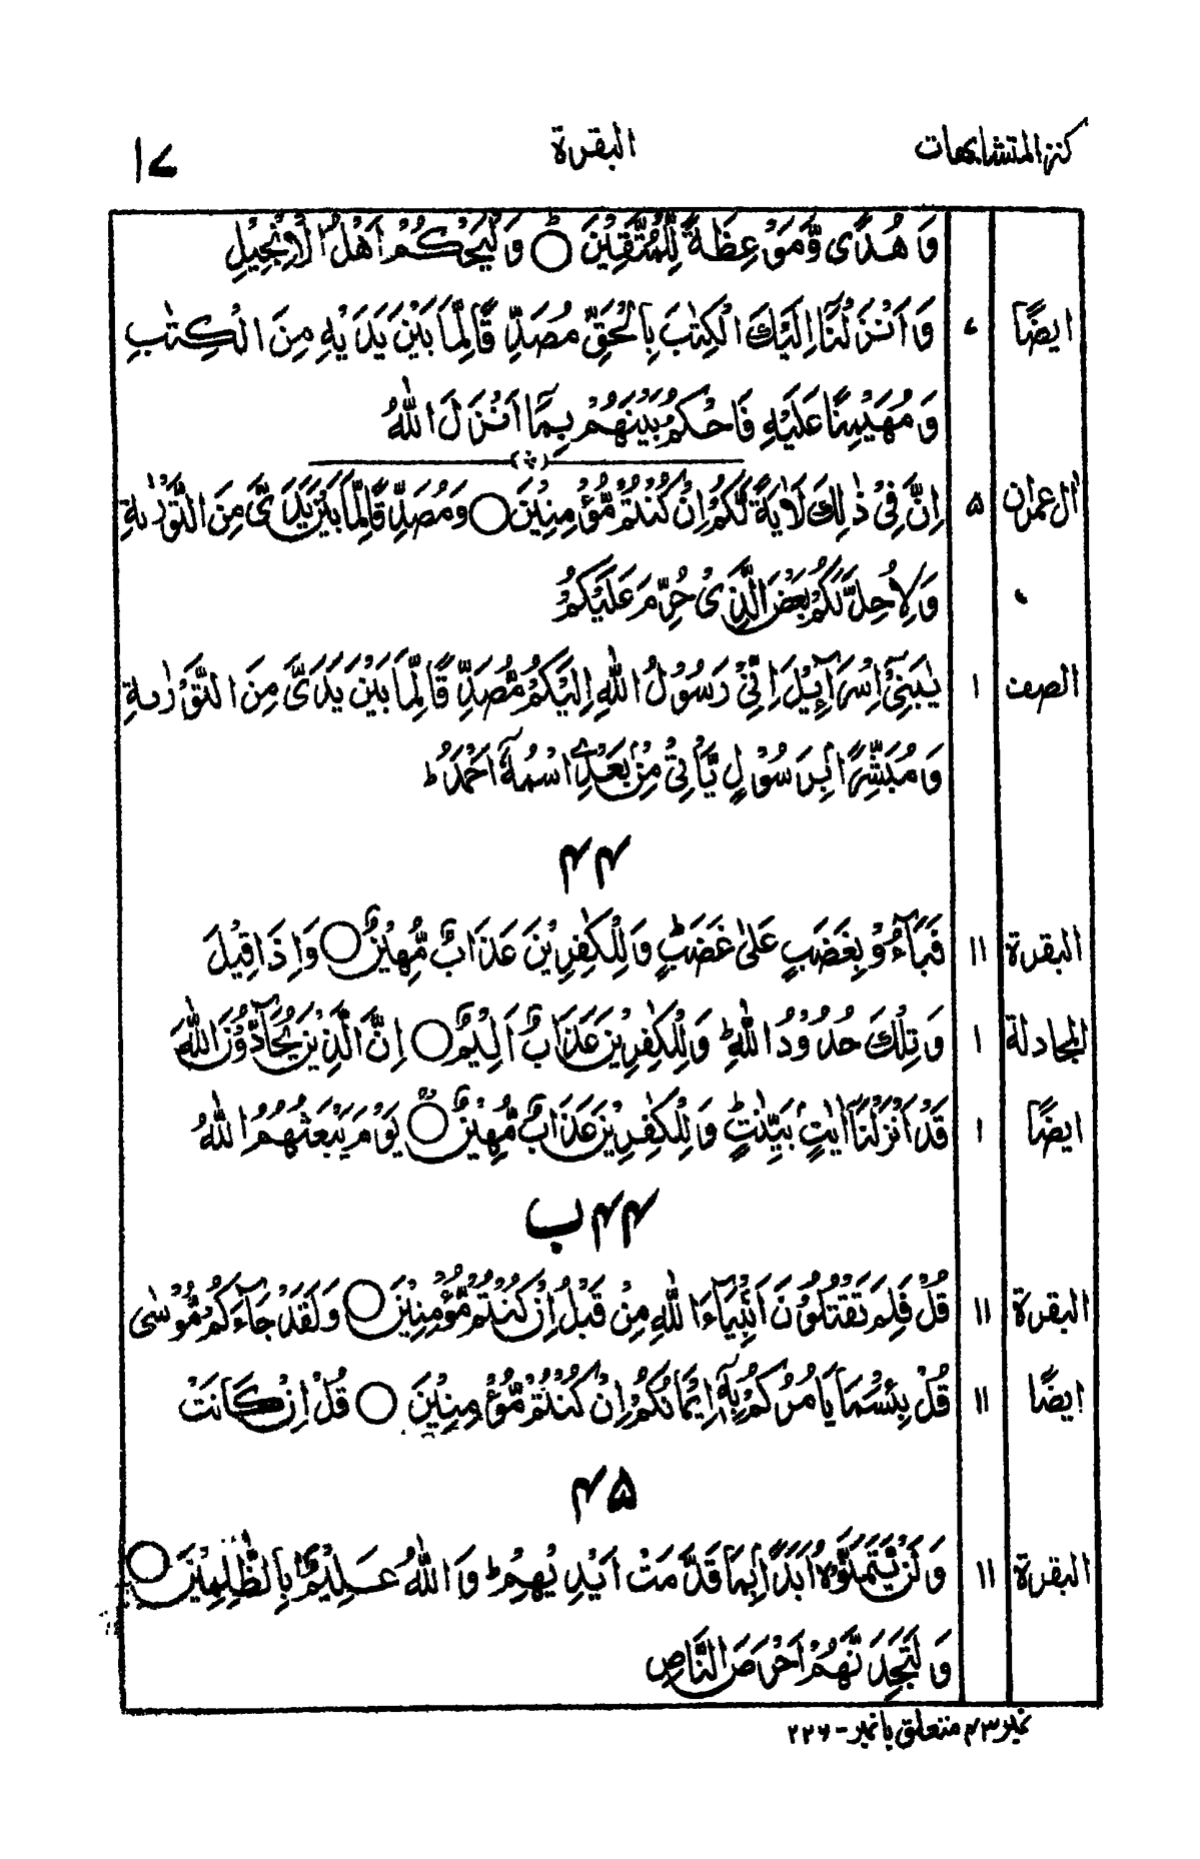 كنز المتشابهات البقرة ١٧
وَ هُدًى وَّ مَوْعِظَةً لِّلْمُتَّقِيْنَ ○ وَلْيَحْكُمْ اَهْلُ الْاِنْجِيْلِ
ايضًا ٧ وَ اَنْزَلْنَاۤ اِلَيْكَ الْكِتٰبَ بِالْحَقِّ مُصَدِّقًا لِّمَا بَيْنَ يَدَيْهِ مِنَ الْكِتٰبِ
وَ مُهَيْمِنًا عَلَيْهِ فَاحْكُمْ بَيْنَهُمْ بِمَاۤ اَنْزَلَ اللّٰهُ
اٰل عمران ۵ اِنَّ فِيْ ذٰلِكَ لَاٰيَةً لَّكُمْ اِنْ كُنْتُمْ مُّؤْمِنِيْنَ ○ وَ مُصَدِّقًا لِّمَا بَيْنَ يَدَيَّ مِنَ التَّوْرٰىةِ
وَ لِاُحِلَّ لَكُمْ بَعْضَ الَّذِيْ حُرِّمَ عَلَيْكُمْ
الصف ١ يٰبَنِيْۤ اِسْرَآءِيْلَ اِنِّيْ رَسُوْلُ اللّٰهِ اِلَيْكُمْ مُّصَدِّقًا لِّمَا بَيْنَ يَدَيَّ مِنَ التَّوْرٰىةِ
وَ مُبَشِّرًۢا بِرَسُوْلٍ يَّاْتِيْ مِنْۢ بَعْدِي اسْمُهٗۤ اَحْمَدُ ؕ
۴۴
البقرة ١١ فَبَآءُوْ بِغَضَبٍ عَلٰى غَضَبٍ ؕ وَ لِلْكٰفِرِيْنَ عَذَابٌ مُّهِيْنٌ ○ وَ اِذَا قِيْلَ
المجادلة ١ وَ تِلْكَ حُدُوْدُ اللّٰهِ ؕ وَ لِلْكٰفِرِيْنَ عَذَابٌ اَلِيْمٌ ○ اِنَّ الَّذِيْنَ يُحَآدُّوْنَ اللّٰهَ
ايضًا ١ قَدْ اَنْزَلْنَاۤ اٰيٰتٍۭ بَيِّنٰتٍ ؕ وَ لِلْكٰفِرِيْنَ عَذَابٌ مُّهِيْنٌ ○ يَوْمَ يَبْعَثُهُمُ اللّٰهُ
۴۴ ب
البقرة ١١ قُلْ فَلِمَ تَقْتُلُوْنَ اَنْۢبِيَآءَ اللّٰهِ مِنْ قَبْلُ اِنْ كُنْتُمْ مُّؤْمِنِيْنَ ○ وَ لَقَدْ جَآءَكُمْ مُّوْسٰى
ايضًا ١١ قُلْ بِئْسَمَا يَاْمُرُكُمْ بِهٖۤ اِيْمَانُكُمْ اِنْ كُنْتُمْ مُّؤْمِنِيْنَ ○ قُلْ اِنْ كَانَتْ
۴۵
البقرة ١١ وَ لَنْ يَّتَمَنَّوْهُ اَبَدًۢا بِمَا قَدَّمَتْ اَيْدِيْهِمْ ؕ وَ اللّٰهُ عَلِيْمٌۢ بِالظّٰلِمِيْنَ ○
وَ لَتَجِدَنَّهُمْ اَحْرَصَ النَّاسِ
نمبر ۴۳ متعلق با نمبر - ۲۲۶